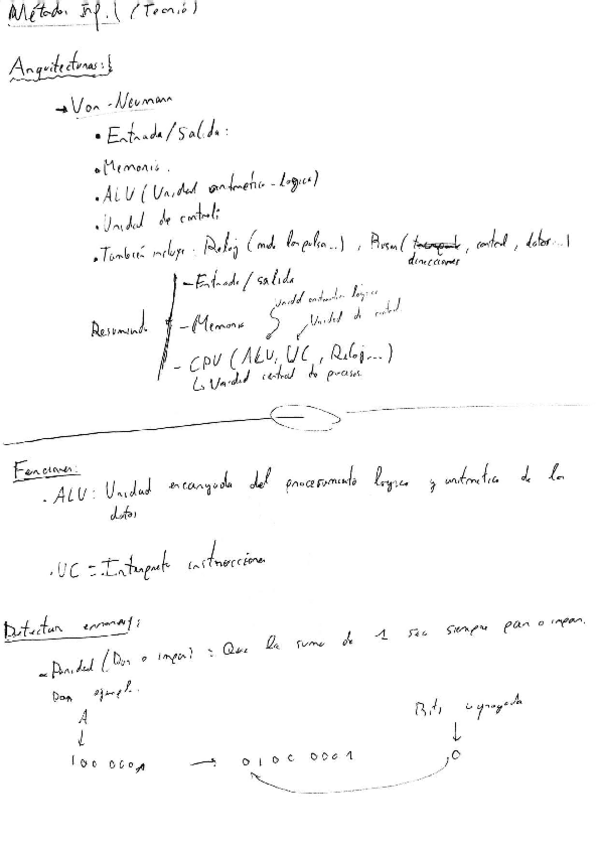 Métodos Inf. (Teoría)
Arquitecturas:
→ Von-Neumann
• Entrada/Salida:
• Memoria.
• ALU (Unidad aritmético-lógica)
• Unidad de control:
• También incluye: Reloj (manda los pulsos...), Buses (transporte, control, datos...)
direcciones
Resumiendo
- Entrada/salida
- Memoria
unidad aritmético lógica
Unidad de control
- CPU (ALU, UC, Reloj...)
↳ Unidad central de procesos
Funciones:
• ALU: Unidad encargada del procesamiento lógico y aritmético de los
datos
• UC = Interpreta instrucciones
Detectar errores:
- Paridad (Par o impar): Que la suma de 1 sea siempre par o impar.
Por ejempl.
A
↓
100 0001 → 0100 0001
Bits agregada
↓
0